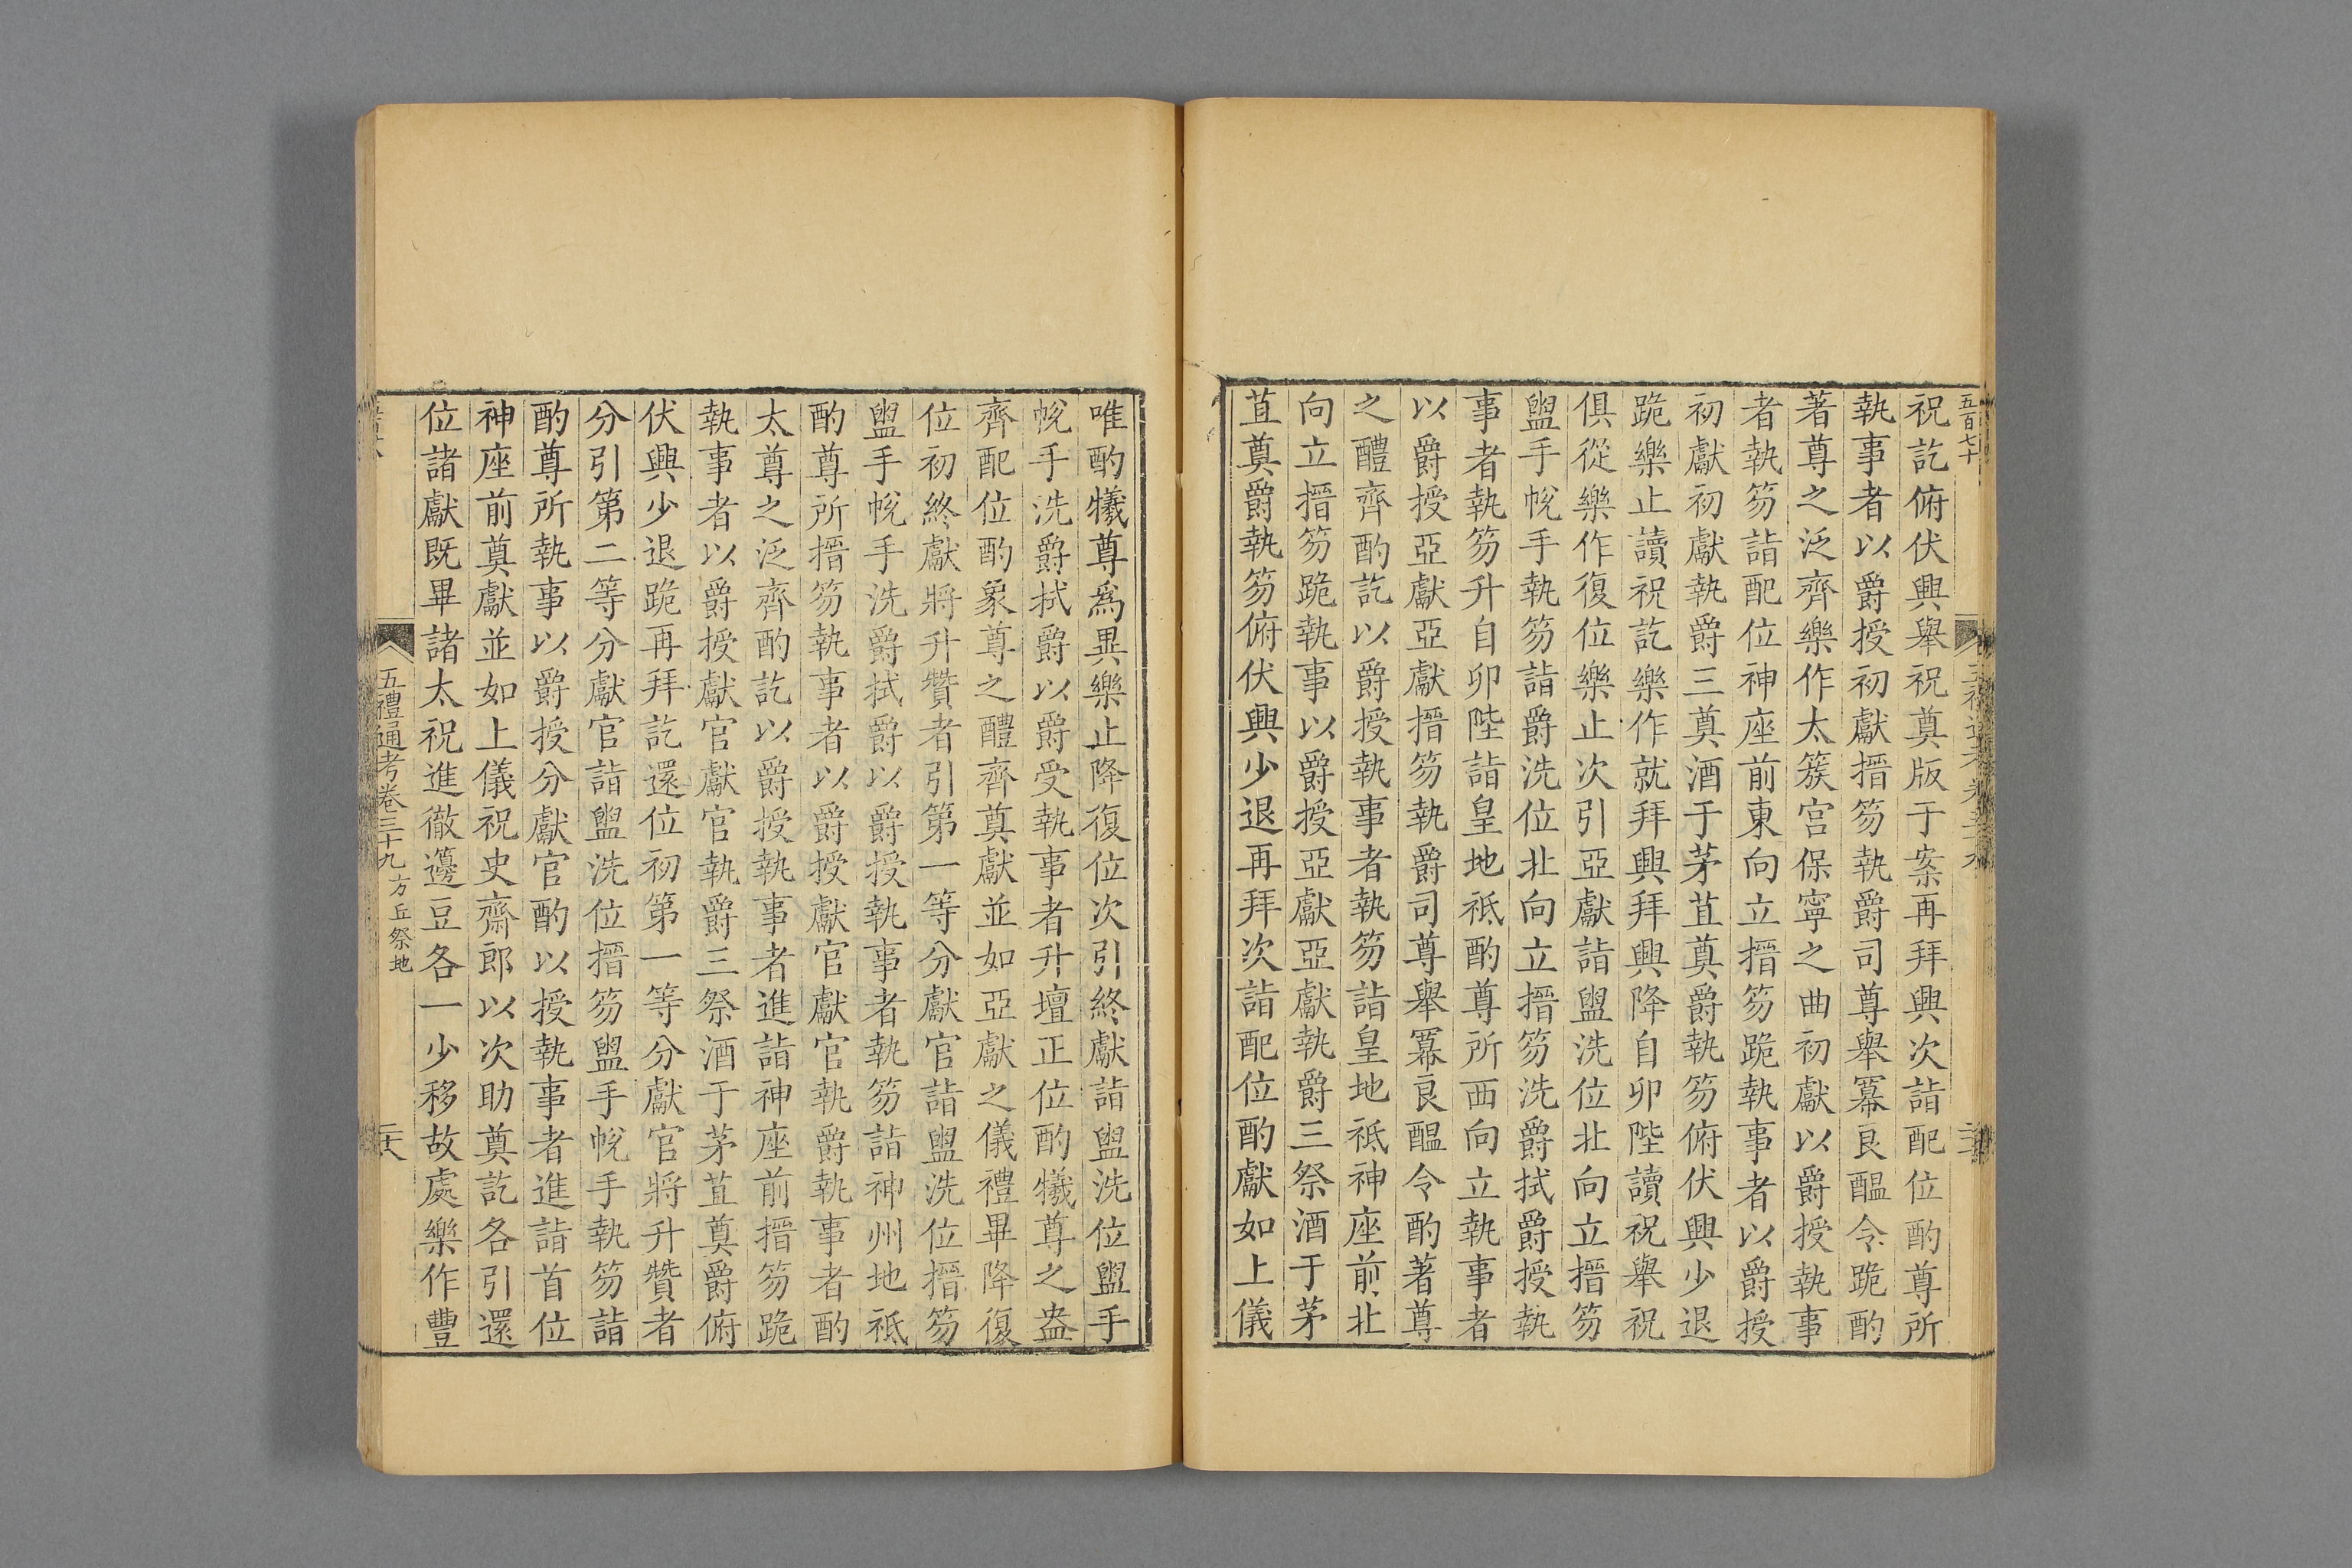 五百七十
祝訖俯伏興舉祝奠版于案再拜興次詣配位酌尊所
執事者以爵授初獻搢笏執爵司尊舉冪良醞令跪酌
著尊之泛齊樂作太簇宮保寧之曲初獻以爵授執事
者執笏詣配位神座前東向立搢笏跪執事者以爵授
初獻初獻執爵三奠酒于茅苴奠爵執笏俯伏興少退
跪樂止讀祝訖樂作就拜興拜興降自卯陛讀祝舉祝
俱從樂作復位樂止次引亞獻詣盥洗位北向立搢笏
盥手帨手執笏詣爵洗位北向立搢笏洗爵拭爵授執
事者執笏升自卯陛詣皇地祇酌尊所西向立執事者
以爵授亞獻亞獻搢笏執爵司尊舉冪良醞令酌著尊
之醴齊酌訖以爵授執事者執笏詣皇地祇神座前北
向立搢笏跪執事以爵授亞獻亞獻執爵三祭酒于茅
苴奠爵執笏俯伏興少退再拜次詣配位酌獻如上儀
唯酌犧尊爲異樂止降復位次引終獻詣盥洗位盥手
帨手洗爵拭爵以爵受執事者升壇正位酌犧尊之盎
齊配位酌象尊之醴齊奠獻並如亞獻之儀禮畢降復
位初終獻將升贊者引第一等分獻官詣盥洗位搢笏
盥手帨手洗爵拭爵以爵授執事者執笏詣神州地祇
酌尊所搢笏執事者以爵授獻官獻官執爵執事者酌
太尊之泛齊酌訖以爵授執事者進詣神座前搢笏跪
執事者以爵授獻官獻官執爵三祭酒于茅苴奠爵俯
伏興少退跪再拜訖還位初第一等分獻官將升贊者
分引第二等分獻官詣盥洗位搢笏盥手帨手執笏詣
酌尊所執事以爵授分獻官酌以授執事者進詣首位
神座前奠獻並如上儀祝史齋郎以次助奠訖各引還
位諸獻既畢諸太祝進徹籩豆各一少移故處樂作豐
五禮通考卷三十九 方丘祭地